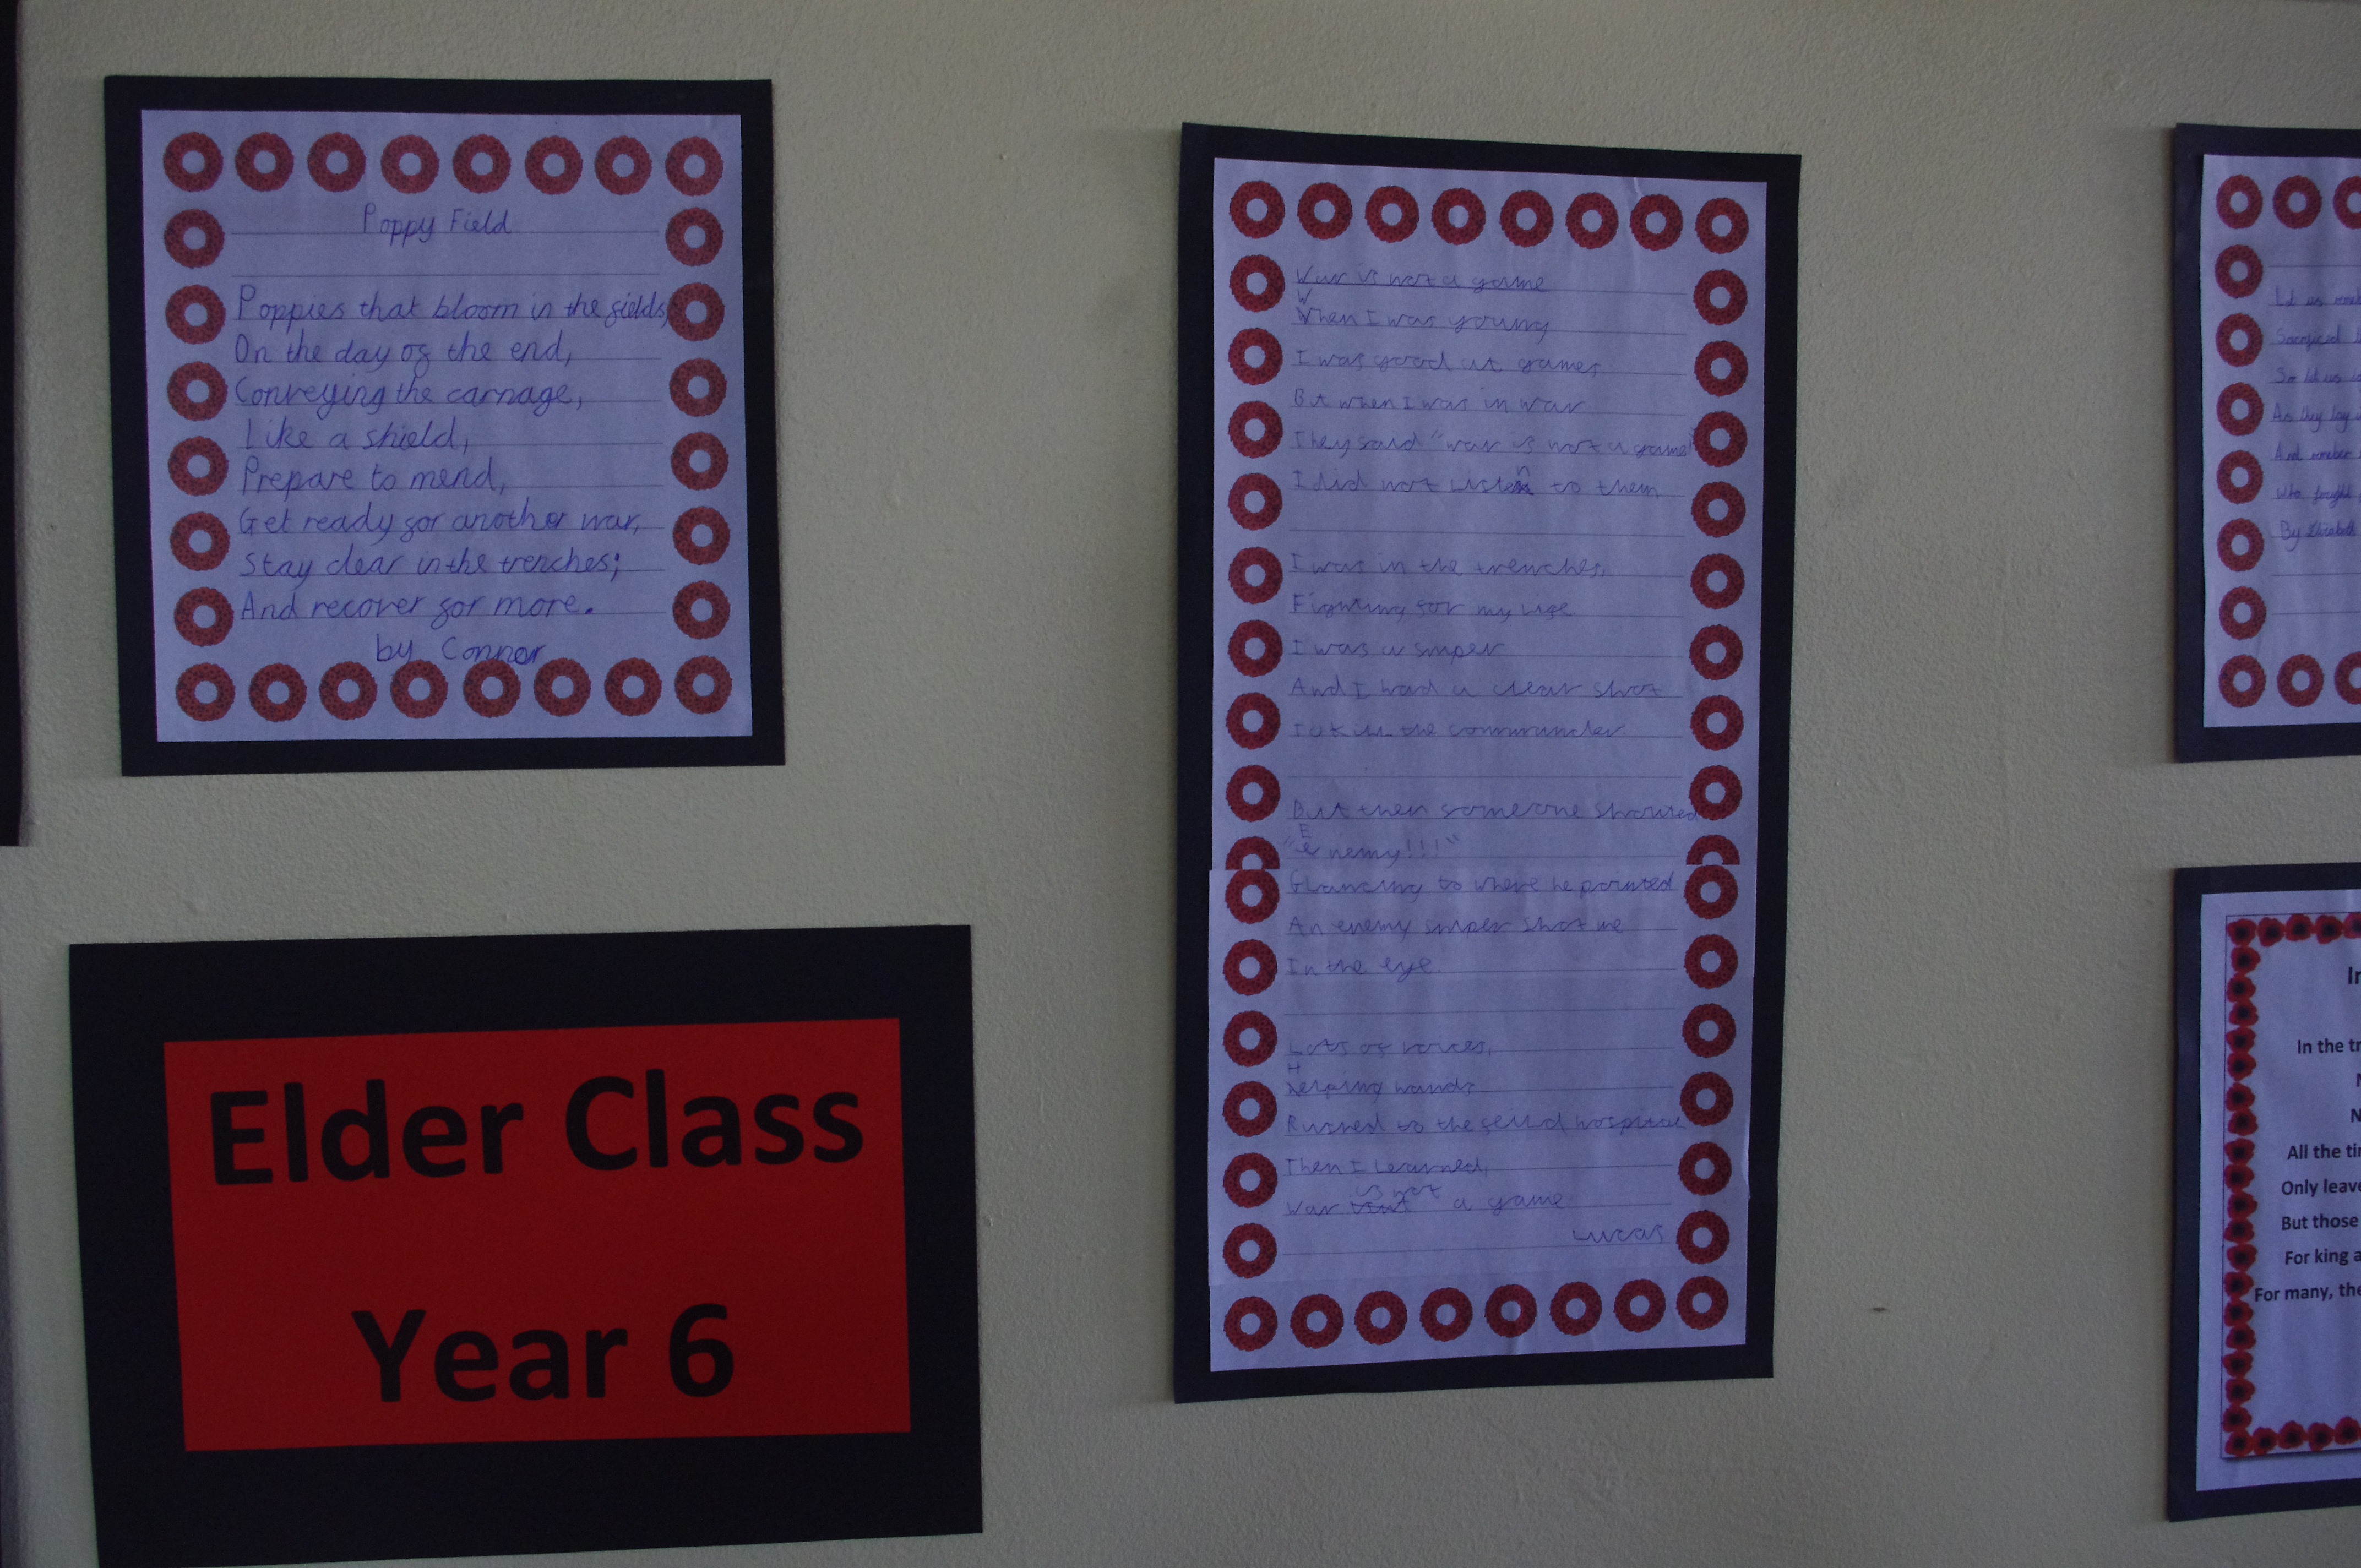 Poppy Field
Poppies that bloom in the fields,
On the day of the end,
Conveying the carnage,
Like a shield,
Prepare to mend,
Get ready for another war,
Stay clear in the trenches;
And recover for more.
by Connor
Elder Class
Year 6
War is not a game
When I was young
I was good at games
But when I was in war
They said "war is not a game"
I did not listen to them
I was in the trenches,
Fighting for my life
I was a sniper
And I had a clear shot
the commander.
But then someone shouted
"Enemy!!!"
Glancing to where he pointed
An enemy sniper shot me
In the eye.
Lots of voices,
Helping hands
Rushed to the feild hospital
Then I learned,
War is not a game
Lucas
Let us
So let us
As they lay
And
who fought
By Elizabeth
In the
All the
Only
But those
For king
For many,